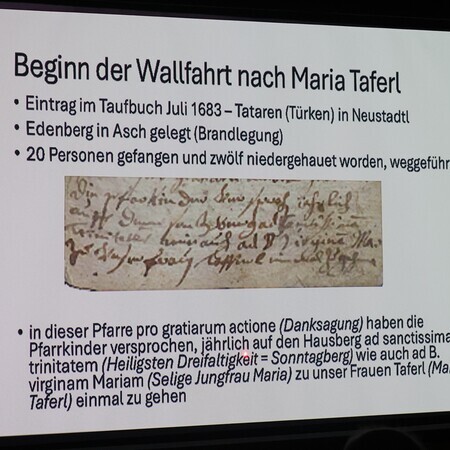 Beginn der Wallfahrt nach Maria Taferl
• Eintrag im Taufbuch Juli 1683 – Tataren (Türken) in Neustadtl
• Edenberg in Asch gelegt (Brandlegung)
• 20 Personen gefangen und zwölf niedergehauet worden, weggeführ
Die Pfarrkinder
auff
ad B Virgine Mar
• in dieser Pfarre pro gratiarum actione (Danksagung) haben die
Pfarrkinder versprochen, jährlich auf den Hausberg ad sanctissima
trinitatem (Heiligsten Dreifaltigkeit = Sonntagberg) wie auch ad B.
virginam Mariam (Selige Jungfrau Maria) zu unser Frauen Taferl (Ma
Taferl) einmal zu gehen